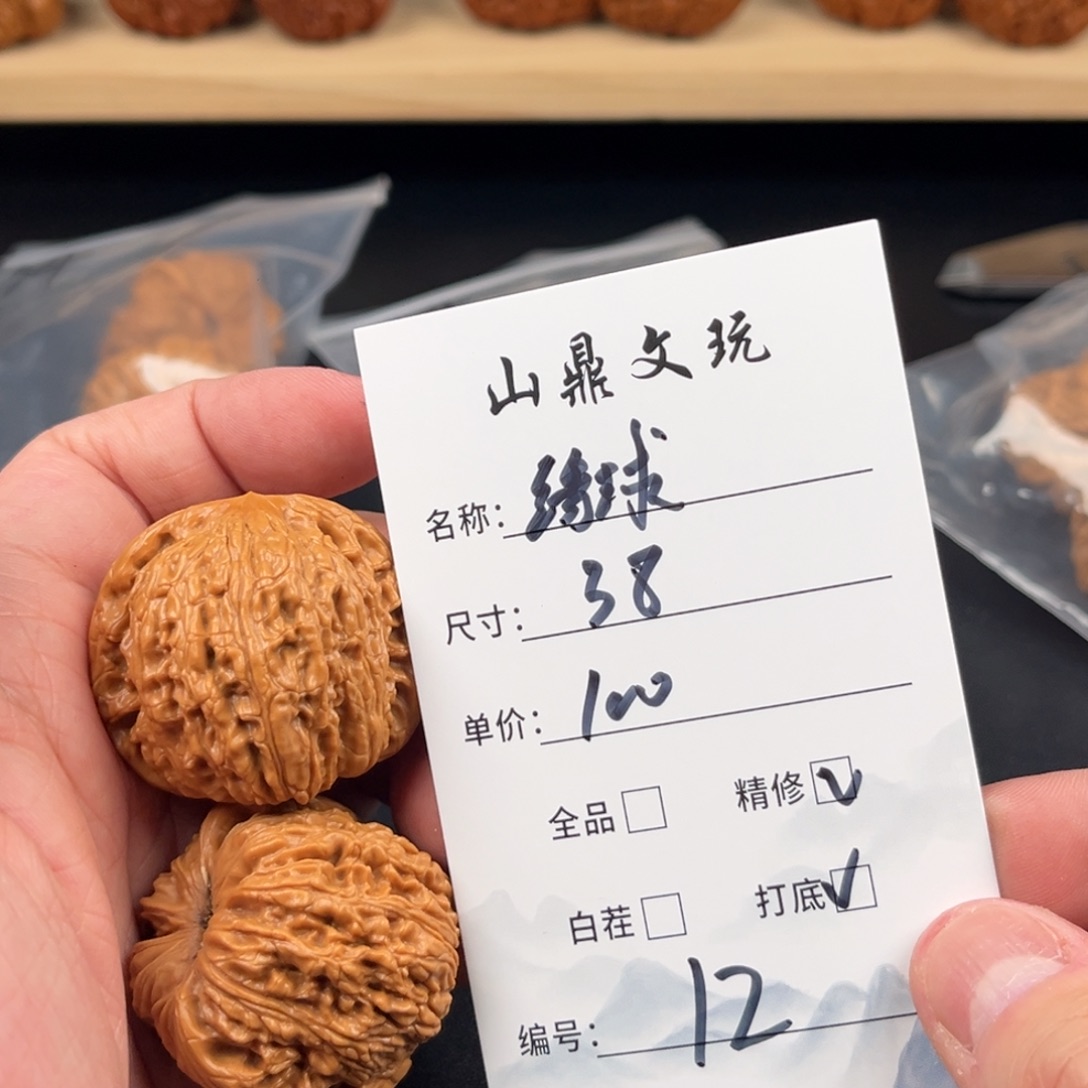 山鼎文玩
名称：绣球
尺寸：38
单价：100
全品 精修
白茬 打底
编号：12